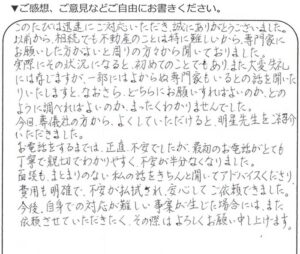 ▼ご感想、ご意見などご自由にお書きください。
このたびは迅速にご対応いただき誠にありがとうございました。
以前から、相続でも不動産のことは特に難しいから、専門家に
お願いした方がよいと周りの方々から聞いておりました。
実際にその状況になると、初めてのことでもあり大変失礼
には存じますが、一部にはよからぬ専門家もいるとの話を聞いた
りいたしますと、なおさら、どちらにお願いすればよいのか、どの
ように調べればよいのか、まったくわかりませんでした。
今回、葬儀社の方から、よくしていただけると、明星先生をご紹介
いただきました。
お電話をするまでは、正直不安でしたが、最初のお電話がとても
丁寧で親切でわかりやすく、不安が半分なくなりました。
面談も、まとまりのない私の話をきちんと聞いてアドバイスくださり、
費用も明確で、不安がお拭され、安心してご依頼できました。
今後、自身での対応が難しい事案が生じた場合には、また
依頼させていただきたく、その際はよろしくお願い申し上げます。